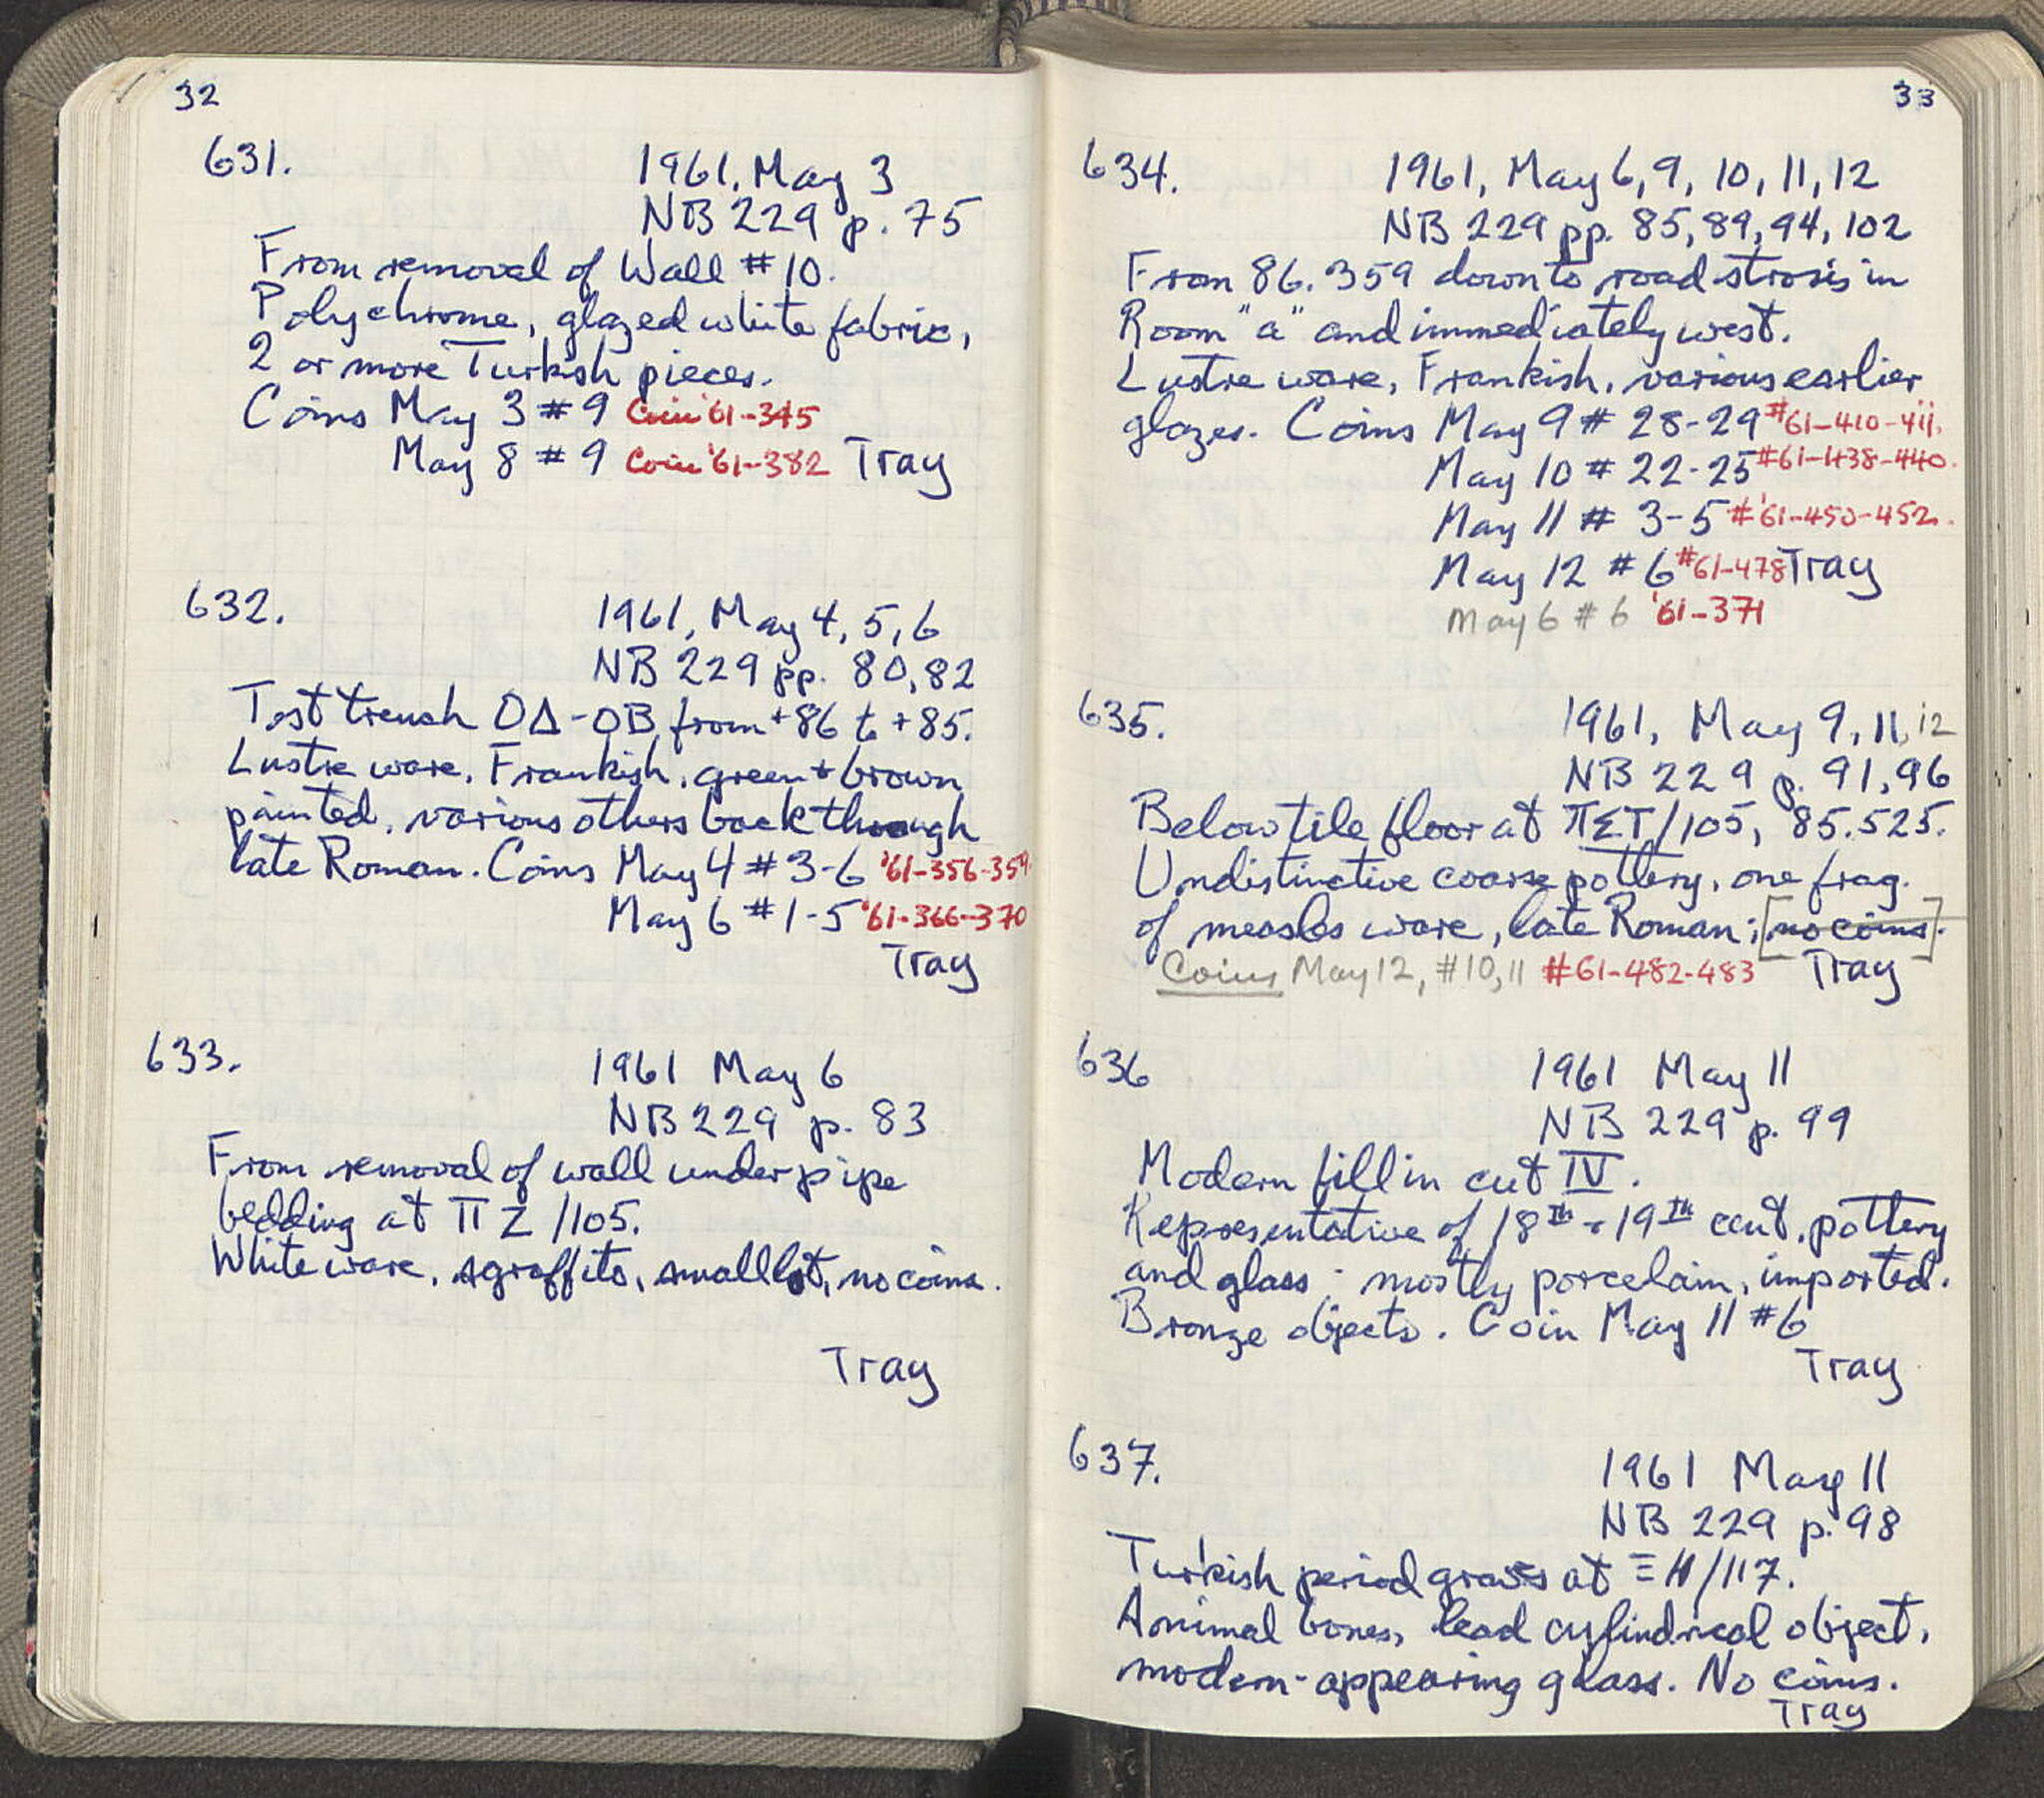 32
631.
1961, May 3
NB 229 p. 75
From removal of Wall #10.
Polychrome, glazed white fabric,
2 or more Turkish pieces.
Coins May 3 #9 Coin '61-345
May 8 #9 Coin '61-382 Tray
632.
1961, May 4, 5, 6
NB 229 pp. 80, 82
Test trench ΟΔ-ΟΒ from +86 to +85.
Lustre ware, Frankish, green + brown
painted, various others back through
late Roman. Coins May 4 #3-6 '61-356-359
May 6 #1-5 '61-366-370
Tray
633.
1961 May 6
NB 229 p. 83
From removal of wall under pipe
bedding at ΠΖ/105.
White ware, sgraffito, small lot, no coins.
Tray
33
634.
1961, May 6, 9, 10, 11, 12
NB 229 pp. 85, 89, 94, 102
From 86.359 down to road strosis in
Room "a" and immediately west.
Lustre ware, Frankish, various earlier
glazes. Coins May 9 # 28-29 #61-410-411.
May 10 # 22-25 #61-438-440.
May 11 # 3-5 #'61-450-452.
May 12 # 6 #61-478 Tray
May 6 # 6 '61-371
635.
1961, May 9, 11, 12
NB 229 p. 91, 96
Below tile floor at ΠΣΤ/105, 85.525.
Undistinctive coarse pottery, one frag.
of measles ware, late Roman; [no coins].
Coins May 12, #10, 11 #61-482-483 Tray
636
1961 May 11
NB 229 p. 99
Modern fill in cut IV.
Representative of 18th + 19th cent. pottery
and glass; mostly porcelain, imported.
Bronze objects. Coin May 11 #6
Tray
637.
1961 May 11
NB 229 p. 98
Turkish period graves at ΞΗ/117.
Animal bones, lead cylindrical object,
modern-appearing glass. No coins.
Tray